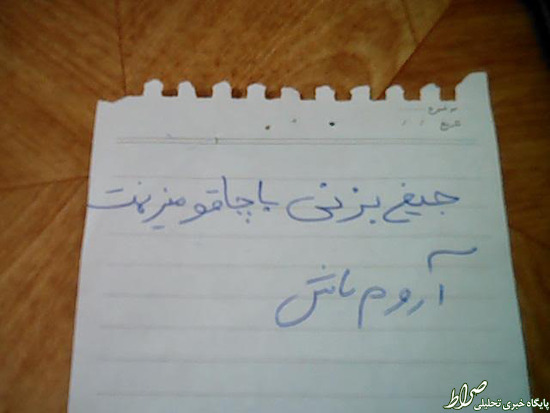 جیغ بزنی با چاقو میزنمت
آروم باش
صراط
پایگاه خبری تحلیلی